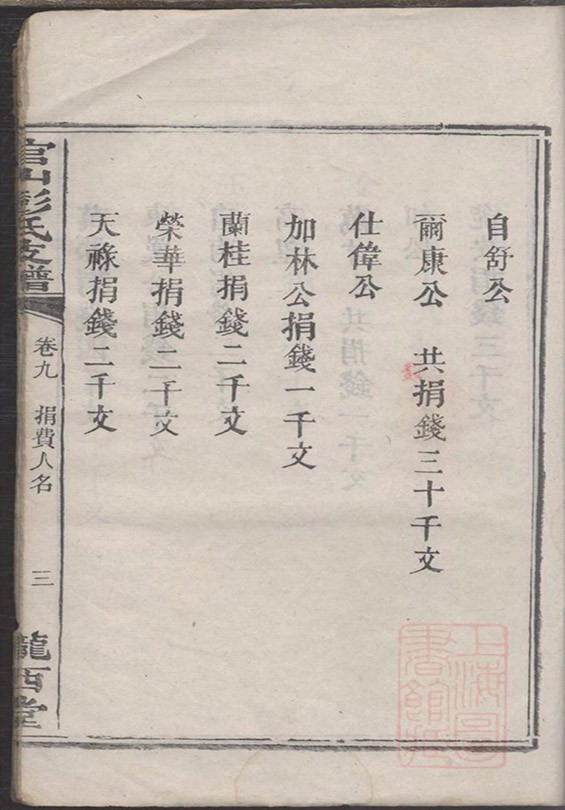 自舒公
爾康公　共捐錢三十千文
仕偉公
加林公捐錢一千文
蘭桂捐錢二千文
榮華捐錢二千文
天祿捐錢二千文
官山彭氏支譜
卷九　捐費人名
三
隴西堂
上海圖書館藏